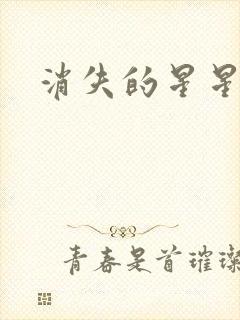 消失的星星
青春是首璀璨